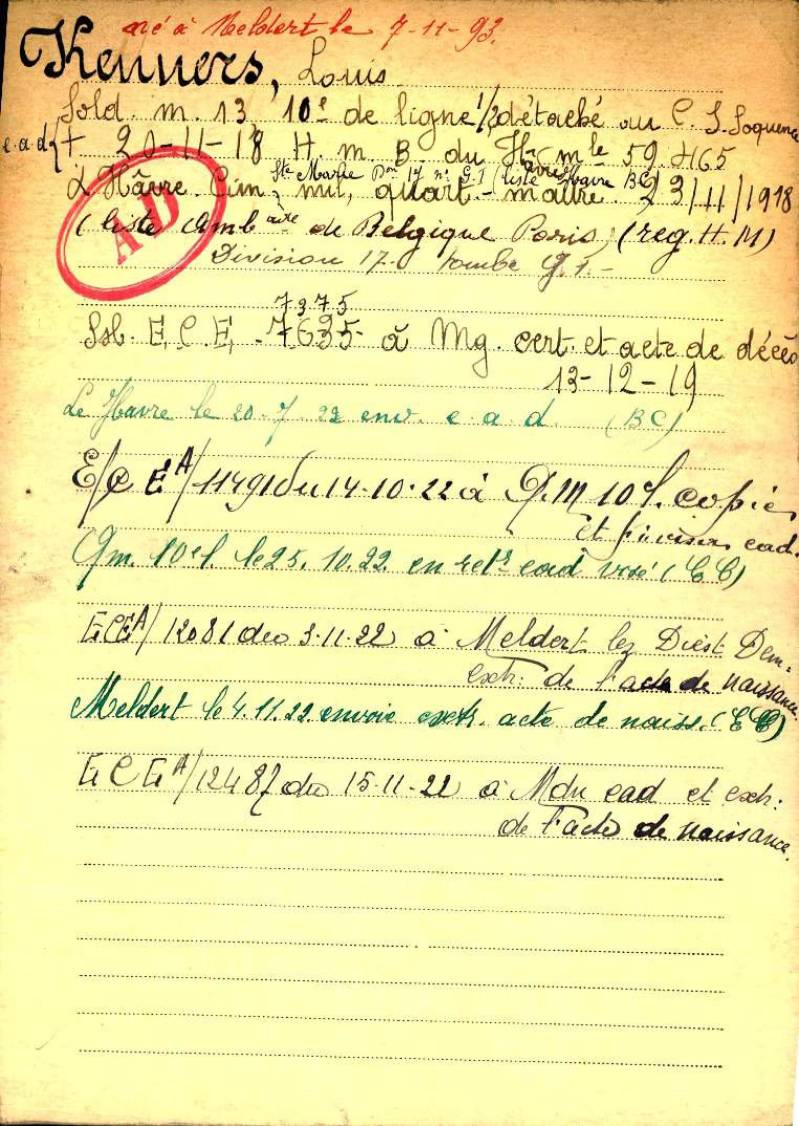 né à Meldert le 7-11-93.
Kenners, Louis
Sold. m. 13 10e de ligne 1/3 détaché au C. I.
e.a.d { + 20-11-18 H. m. B. du Hre mle 59.465
Ste Marie Don 17 no G.1 (liste Havre BC)
Le Hâvre. Cim. mil. quart.-maître. 23/11/1918
AD
(liste Ambre de Belgique Paris) (reg. H. M)
Division 17. tombe G.1.-
7375
E.C.E. 7635 à Mg. cert. et acte de décès
13-12-19
Le Havre le 20-7-22 env. e.a.d. (BC)
E/C E A/11491 du 14-10-22 à Q.M 10 l. copie
et cad.
Qm. 10e l. le 25.10.22. en retr cad visé (EC)
E.C.E A/12081 du 3-11-22 à Meldert lez Diest Dem.
extr. de l'acte de naissance.
Meldert le 4.11.22. envoie extr. acte de naiss. (EC)
E C E A/12487 du 15-11-22 à Mdn cad et extr.
de l'acte de naissance.